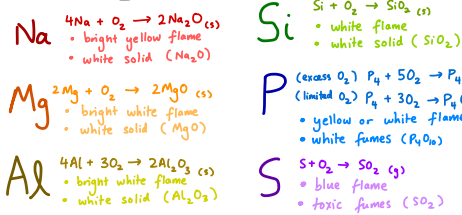 Na
4Na + O₂ → 2Na₂O(s)
• bright yellow flame
• white solid (Na₂O)
Mg
2Mg + O₂ → 2MgO (s)
• bright white flame
• white solid (MgO)
Al
4Al + 3O₂ → 2Al₂O₃ (s)
• bright white flame
• white solid (Al₂O₃)
Si
Si + O₂ → SiO₂ (s)
• white flame
• white solid (SiO₂)
P
(excess O₂) P₄ + 5O₂ → P₄
(limited O₂) P₄ + 3O₂ → P₄
• yellow or white flame
• white fumes (P₄O₁₀)
S
S + O₂ → SO₂ (g)
• blue flame
• toxic fumes (SO₂)